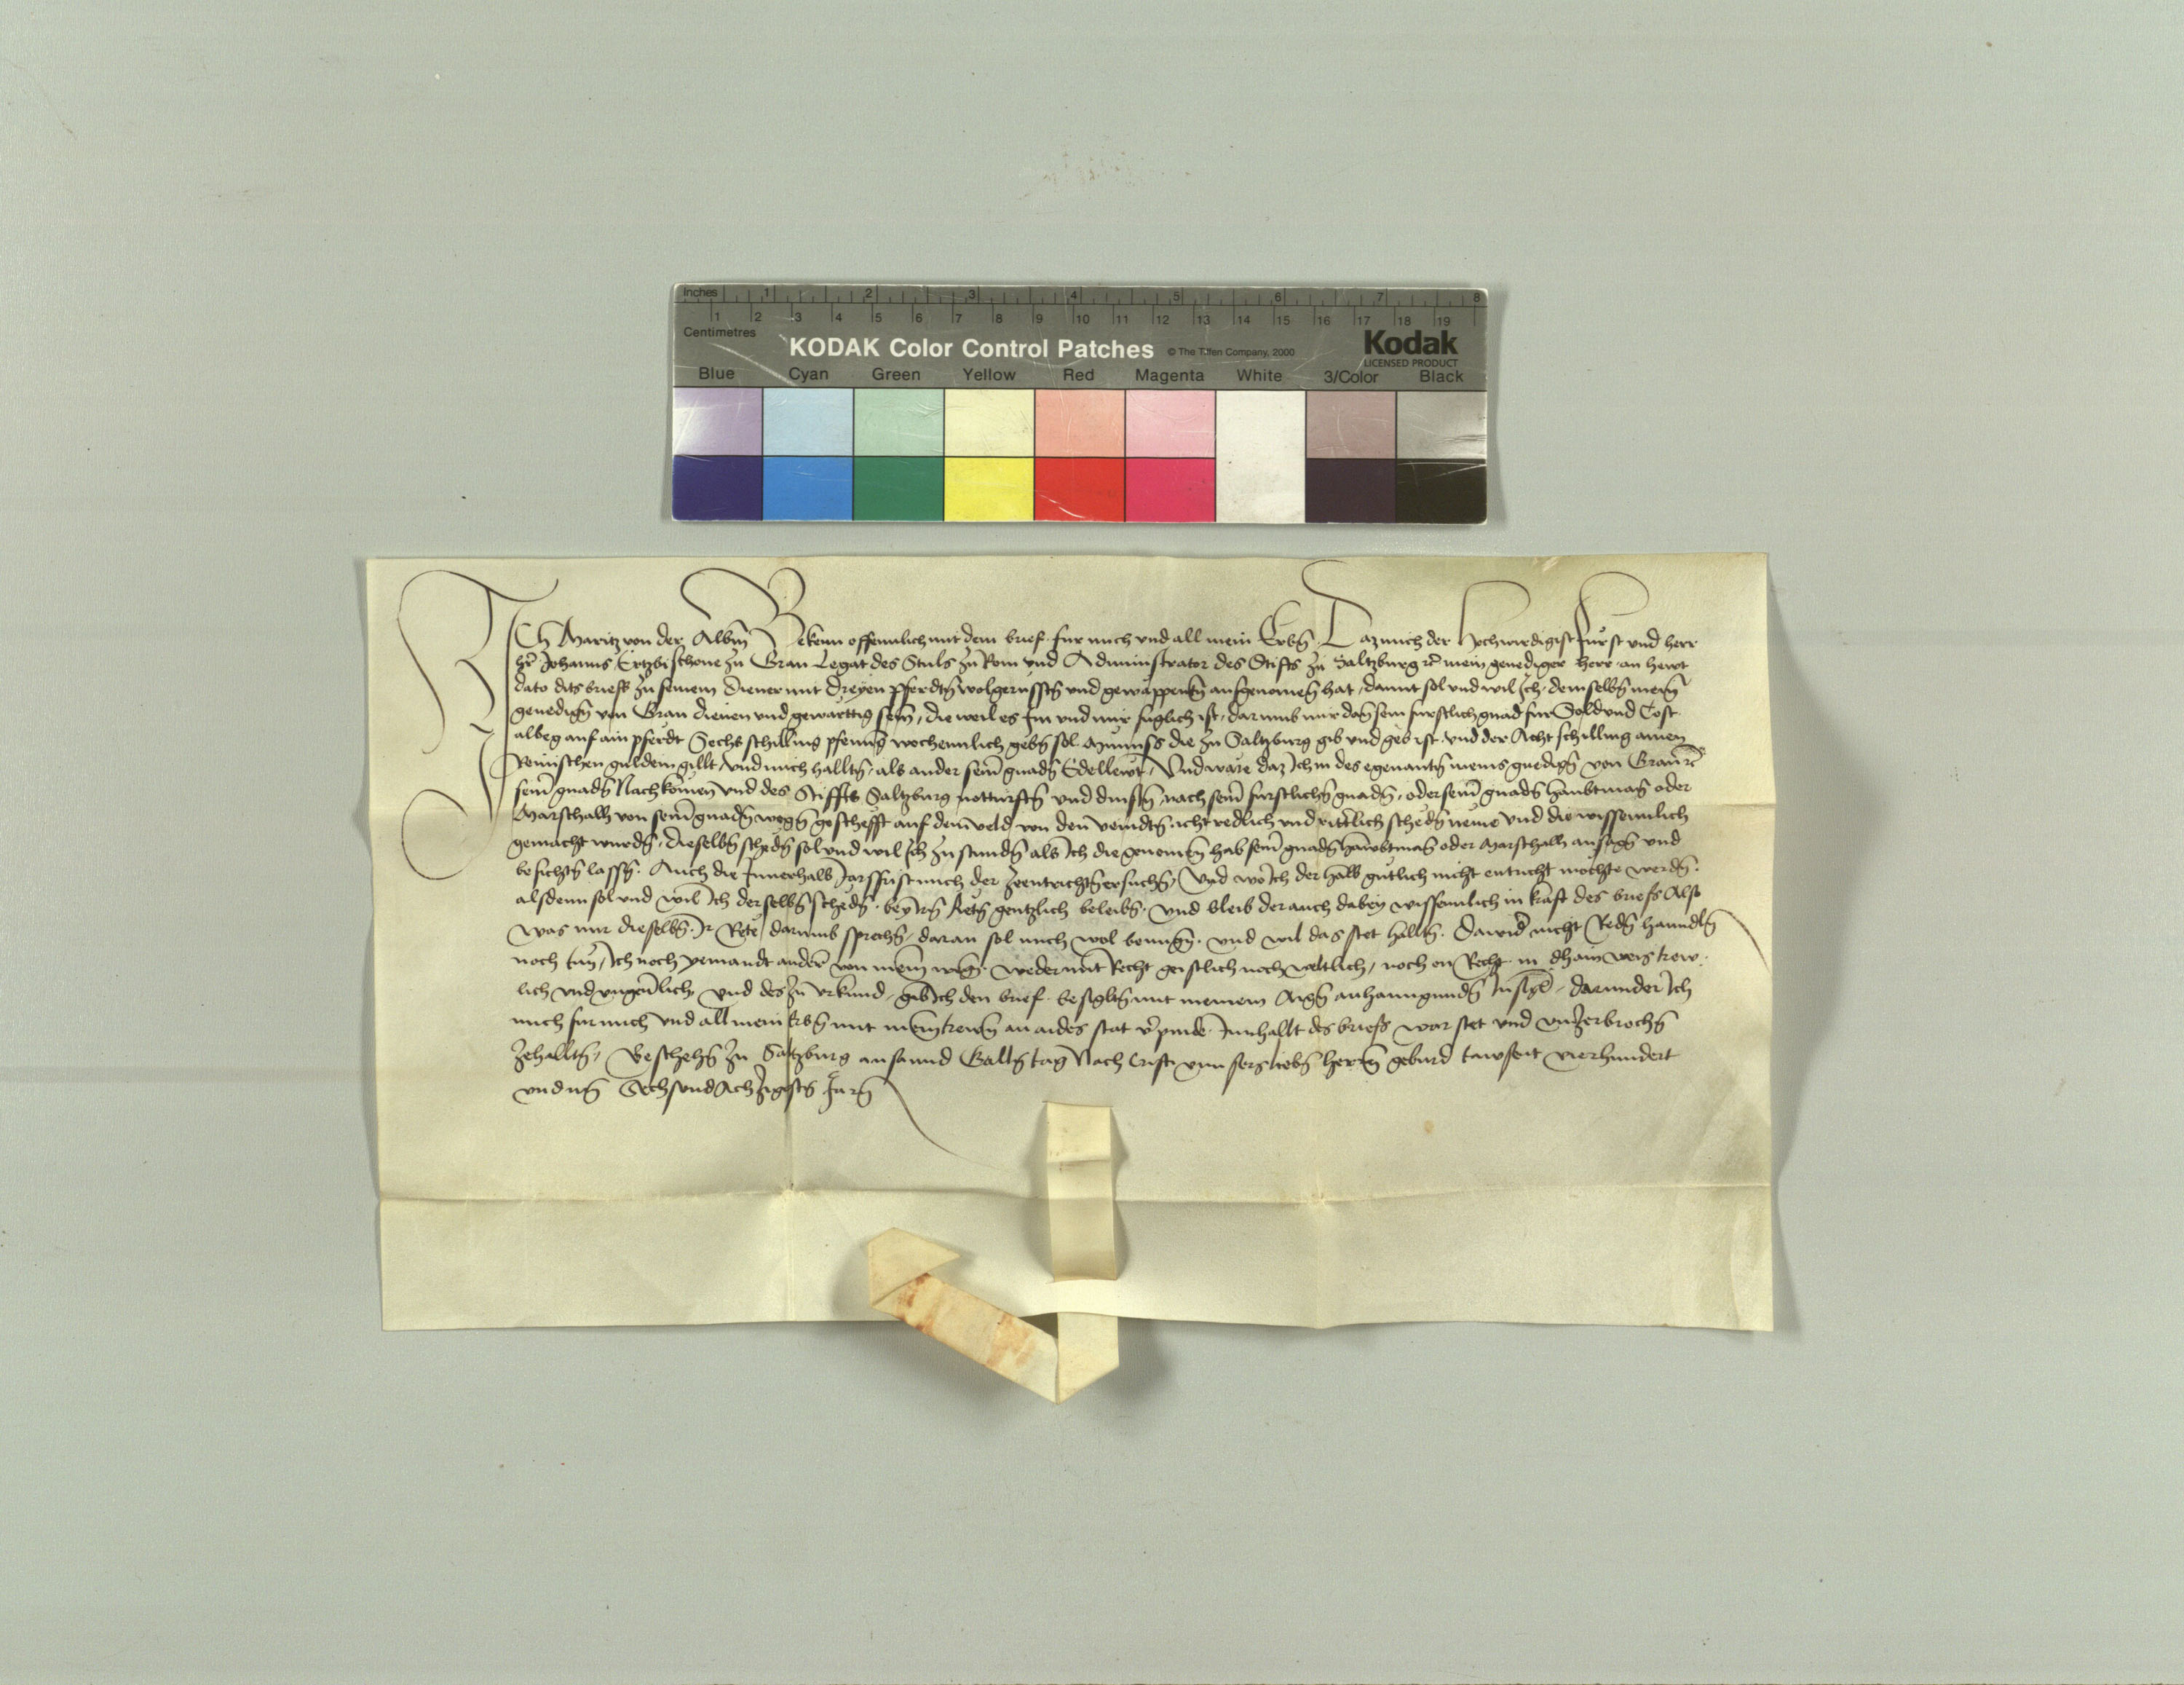 Inches 1 2 3 4 5 6 7 8
1 2 3 4 5 6 7 8 9 10 11 12 13 14 15 16 17 18 19
Centimetres
KODAK Color Control Patches © The Tiffen Company, 2000 Kodak
LICENSED PRODUCT
Blue Cyan Green Yellow Red Magenta White 3/Color Black
ICh Maritz von der Albm̄ Bekenn offennlich mit dem brief fur mich vnd all mein Erbn̄ Daz mich der Hochwirdigist fürst vnd herr
her Johanns Ertzbischoue zu Gran Legat des Stuls zu Rom vnd Administrator des Stifts zu Saltzburg rc̄ mein genediger herr an hewt
dato dits briefs zu seinem diener mit dreyen pferdtn̄ wolgerusstn̄ vnd gewappentn̄ aufgenomen̄ hat, damit sol vnd wil Ich demselbn̄ meim̄
genedign̄ von Gran dienen vnd gewarttig sein̄, die weil es Im vnd mir fuglich ist, darumb mir dan̄ sein furstlich gnad fur Sold vnd Cost
albeg auf ain pferdt Sechs schilling pfennig wochennlich gebn̄ sol Munnss die zu Saltzburg gib vnd geb ist vnd der Acht schilling ainen
Reinischen guldein gillt, vnd mich halltn̄, als ander seīn gnadn̄ Edellewt, Vnd ware daz Ich in des egenantn̄ meins gnedign̄ von Gran rc̄
seīn gnadn̄ Nachkomen̄ vnd des Stiffts Saltzburg notturftn̄ vnd dinstn̄, nach seīn furstlichn̄ gnadn̄, oder seīn gnadn̄ haubtman̄ oder
Marschalh von seīn gnadn̄ wegn̄ geschefft auf dem veld von den veindtn̄ icht redlich vnd rittlich schedn̄ neme vnd die wissennlich
gemacht wurdn̄, dieselbn̄ schedn̄ sol vnd wil Ich zu stundn̄ als Ich die genomen̄ hab seīn gnadn̄ hawbtman̄ oder Marschalh ansagn̄ vnd
besichtn̄ lassn̄. Auch die Innerhalb Jarsfrist mich der zeentrichtn̄ ersuchn̄, Vnd wo Ich der halb gutlich nicht entricht mochte werdn̄.
alsdenn sol vnd wil Ich derselbn̄ schedn̄ bey Irn̄ Retn̄ gentzlich beleibn̄. vnd bleib der auch dabey wissennlich in kraft des briefs Also
was mir dieselbn̄ Ir Rete darumb sprechn̄, daran sol mich wol benugn̄. vnd wil das stet halltn̄. Dawider nicht Redn̄ hanndln̄
noch tun̄, Ich noch yemandt ander von meīn wegn̄ weder mit Recht geistlich noch weltlich, noch on Recht in dhain weis trew-
lich vnd vngeuerlich, vnd des zu vrkund gib Ich den brief besigltn̄ mit meinem Aign̄ anhanngundn̄ Insigl, darunder Ich
mich fur mich vnd all mein Erbn̄ mit meīn trewn̄ an aides stat verpinde Innhallt des briefs war stet vnd vnzerbrochn̄
zehalltn̄, Beschehn̄ zu Saltzburg an sannd Galln̄ tag Nach Cristi vnnsers liebn̄ herrn̄ geburd tawsent vierhundert
vnd im̄ Sechsundachzigistn̄ Jarn̄